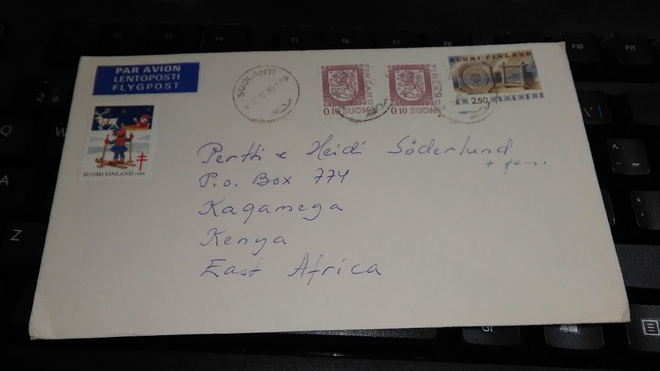 PAR AVION
LENTOPOSTI
FLYGPOST
SUOLAHTI
0.10 SUOMI
FINLAND
0.10 SUOMI
FINLAND
SUOMI-FINLAND
2.50
SUOMI FINLAND
Pertti & Heidi Söderlund
+ fam.
P.o. Box 774
Kagamega
Kenya
East Africa
Z
F10
F11